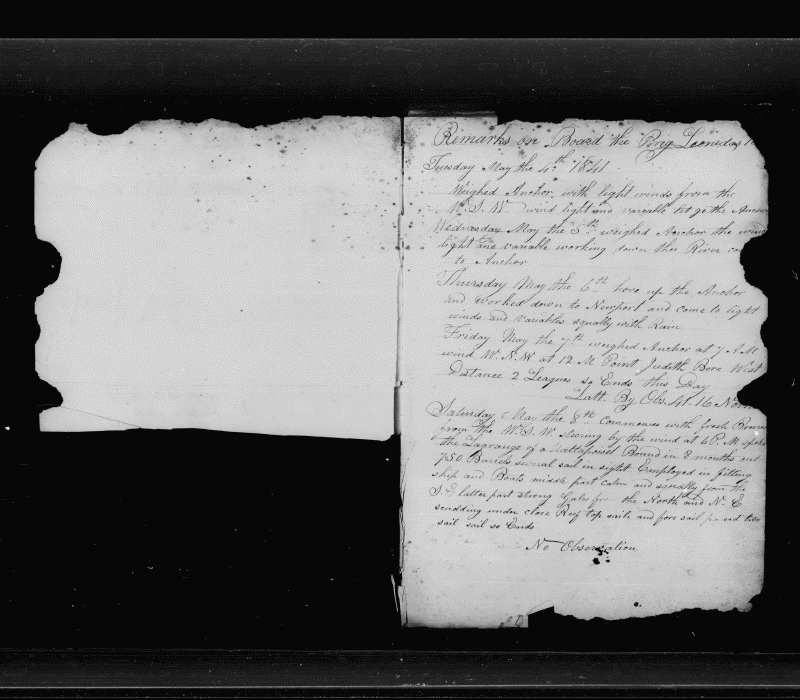 Remarks on Board the Brig Leonidas
Tuesday May the 4th 1841
Weighed Anchor with light winds from the
W.S.W. wind light and variable let go the Anchor
Wednesday May the 5th weighed Anchor the wind
light and variable working down the River
to Anchor
Thursday May the 6th hove up the Anchor
and worked down to Newport and come to light
winds and variable squally with Rain
Friday May the 7th weighed Anchor at 7 A M
wind W.N.W at 12 M Point Judith Bore West
Distance 2 Leagues so Ends this Day
Latt. By Obs. 41.16 North
Saturday May the 8th Commences with fresh
from the W.S.W. Stering by the wind at 6 P.M spoke
the Lagrange of Mattapoiset Bound in 8 months out
750 Barrels several sail in sight Employed in fitting
ship and Boats middle part calm and from the
S.E latter part strong Gales from the North and N. E
scudding under close Reef top sails and fore sail
sail sail so Ends
No Observation